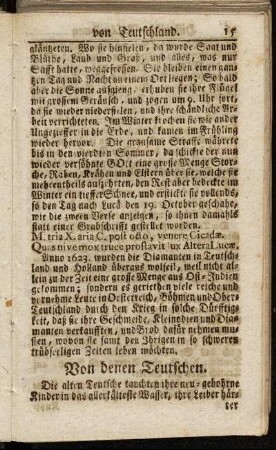 von Teutschland. 15
gläntzeten. Wo sie hinfielen, da wurde Saat und
Blüthe, Laub und Graß, und alles, was nur
Safft hatte, weggefressen. Sie bleiben einen gan-
tzen Tag und Nacht an einem Ort liegen; So bald
aber die Sonne aufgieng, erhuben sie ihre Flügel
mit grossem Geräusch, und zogen um 9. Uhr fort,
da sie wieder niederfielen, und ihre schändliche Ar-
beit verrichteten. Im Winter krochen sie wie ander
Ungeziefer in die Erde, und kamen im Frühling
wieder hervor. Die grausame Straffe währete
bis in den vierdten Sommer, da schickte der nun
wieder versöhnte GOtt eine grosse Menge Stor-
che, Raben, Krähen und Elstern über sie, welche sie
mehrentheils aufzehrten, den Rest aber bedeckte im
Winter ein tieffer Schnee, und erstickte sie vollends,
so den Tag nach Lucä den 19. October geschahe,
wie die zwen Verse anzeigen, so ihnen damahls
statt einer Grabschrifft gestellet worden.
M. tria X. aria C. post octo, venere Cicadæ.
Quas nive mox truce prostavit lux Altera Lucæ.
Anno 1623. wurden die Diamanten in Teutsch-
land und Holland überaus wolfeil, weil nicht al-
lein zu der Zeit eine grosse Menge aus Ost-Indien
gekommen; sondern es geriethen viele reiche und
vornehme Leute in Oesterreich, Böhmen und Ober-
Teutschland durch den Krieg in solche Dürfftig-
keit, daß sie ihre Geschmeide, Kleinodien und Dia-
manten verkaufften, und Brod dafür nehmen mus-
sen, wovon sie samt den Ihrigen in so schweren
trübseeligen Zeiten leben möchten.
Von denen Teutschen.
Die alten Teutsche tauchten ihre neu-gebohrne
Kinder in das allerkälteste Wasser, ihre Leiber här-
ter